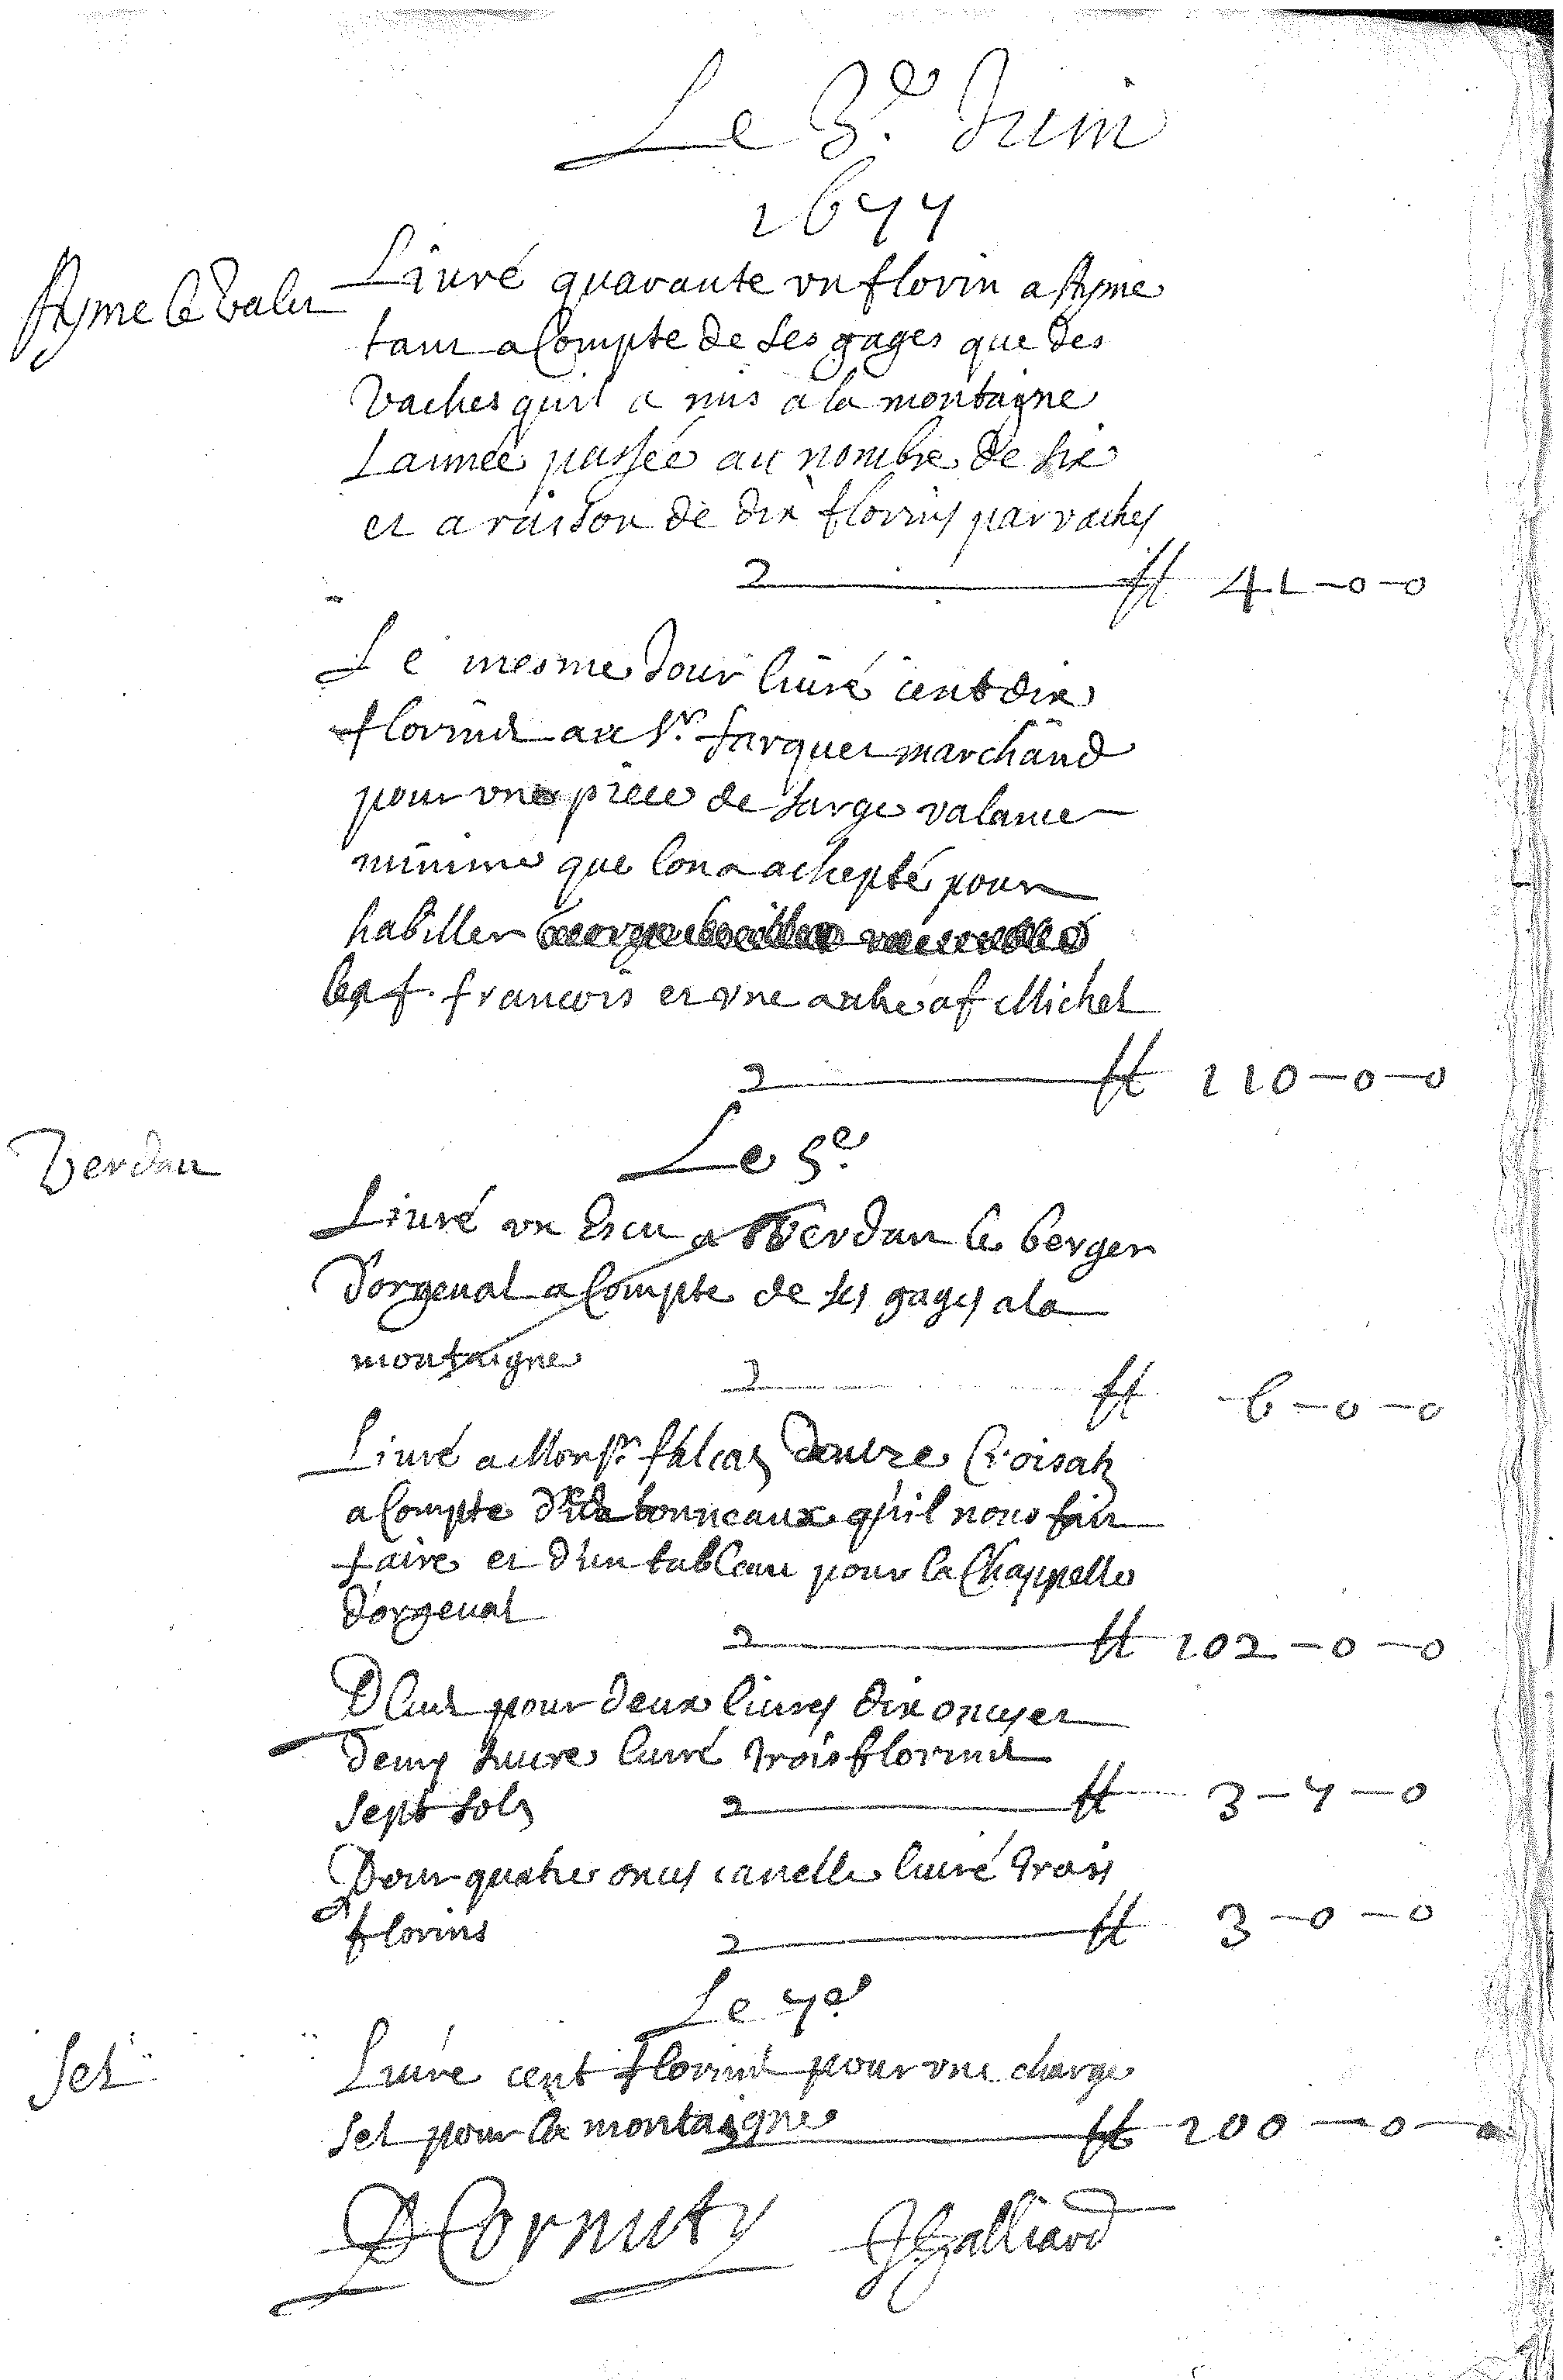 Le 3e. Juin
1677
Ayme le valet
Liuré quarante vn florin a Ayme
tant a Compte de ses gages que des
vaches quil a mis a la montagne
Lannée passée au nombre de six
et a raison de dix florins par vaches
2 ff 41-0-0
Le mesme Jour liuré cent dix
florins au Sr. farquet marchand
pour vne piece de sarge valance
minime que lon a achepté pour
habiller
les f. francois et vne autre a f Michel
2 ff 110-0-0
Le 5e.
Verdan
Liuré vn Escu a Verdan le berger
D'orgeual a Compte de ses gages a la
montaigne
2 ff 6-0-0
Liuré a Monsr. falcaz Croisatz
a Compte tonneaux qu'il nous fait
faire et d'un tableau pour la Chappelle
d'orgeual
2 ff 102-0-0
Plus pour deux liures dix onces et
demy sucre liuré trois florins
sept sols 2 ff 3-7-0
Pour quatre onces canelle liuré trois
florins 2 ff 3-0-0
Le 7e
Sel
Liuré cent florins pour vne charge
sel pour la montaigne ff 100-0-0
D Cornuty JGalliard